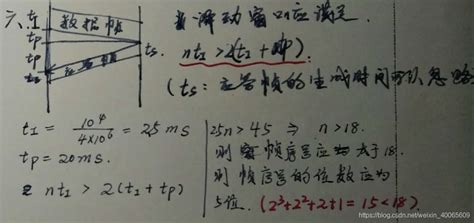 六.
tI
数据帧
tp
tp
tI
应答帧
ts
滑动窗口应满足.
ntI > 2(tI + tp).
(ts: 应答帧的生成时间可以忽略
tI = 10⁴ / 4×10⁶ = 25 ms
tp = 20ms.
ntI > 2(tI + tp)
25n > 45 ⇒ n > 18.
则 帧序号应 大于18.
则帧序号的位数应为
5位. (2³+2²+2+1 = 15 < 18).
https://blog.csdn.net/weixin_40065606